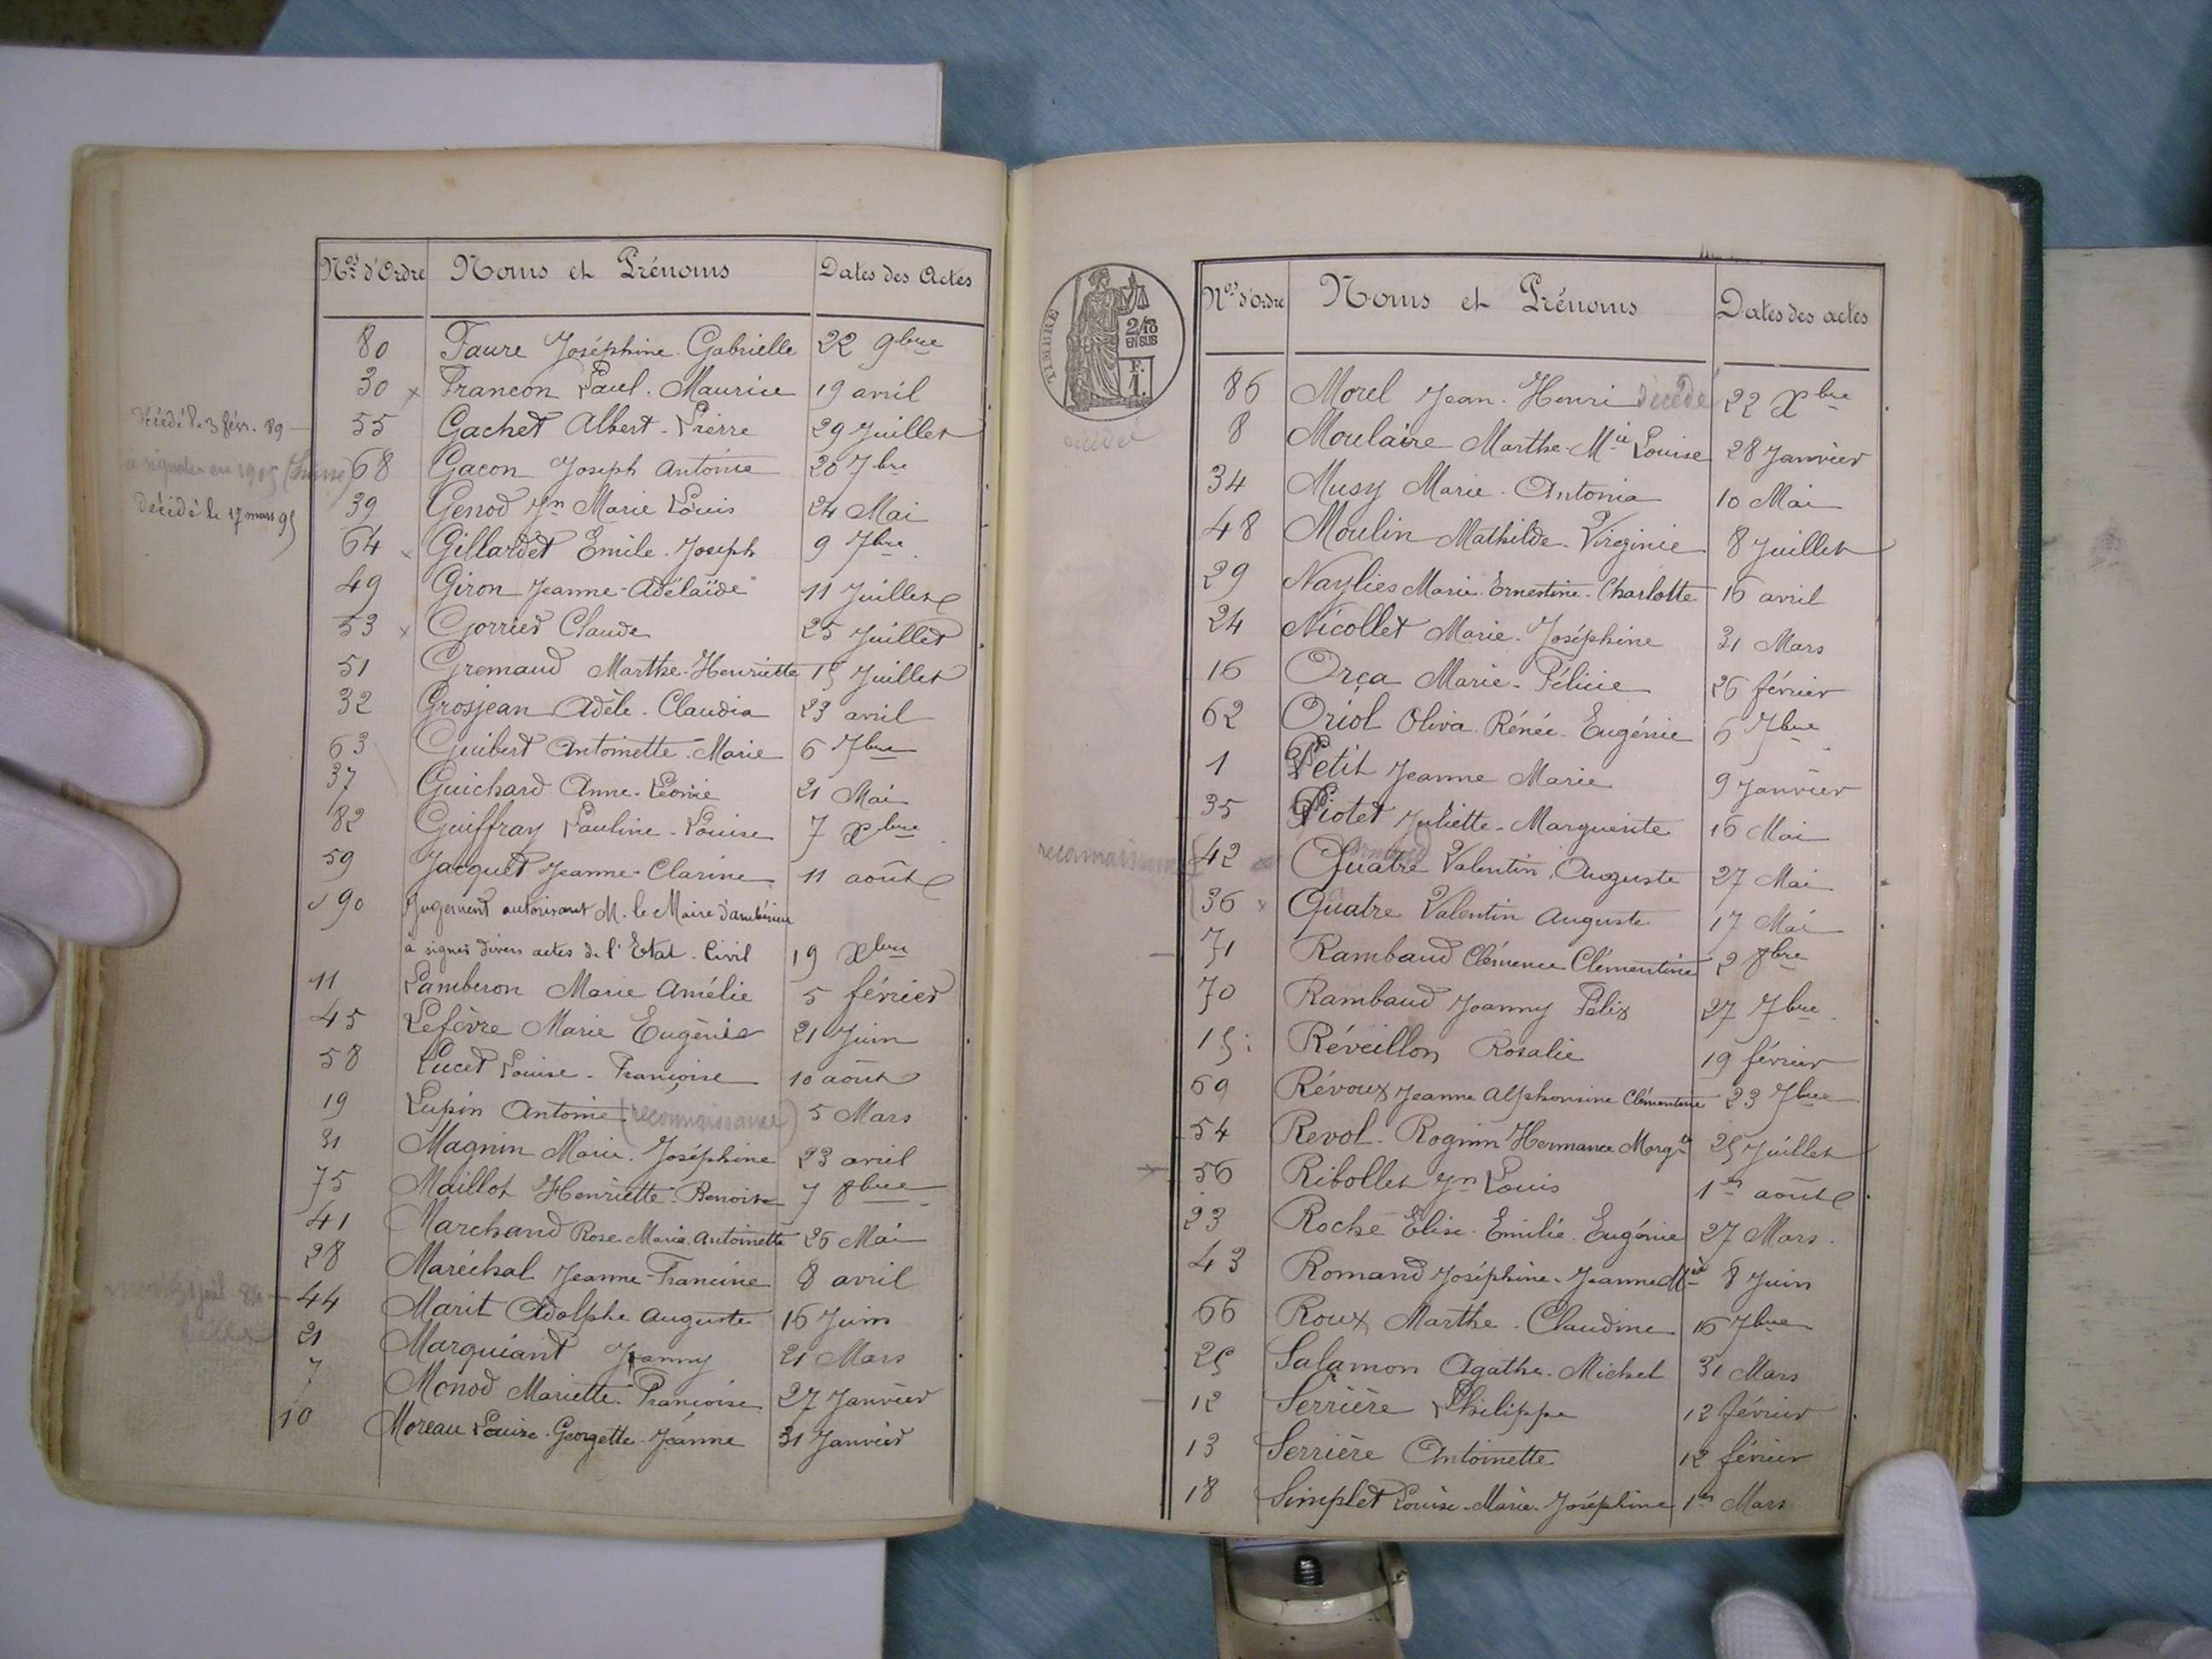 Nos d'Ordre Noms et Prénoms Dates des Actes
80 Faure Joséphine Gabrielle 22 9bre
30 x Francon Paul. Maurice 19 avril
décédé le 3 févr. 89 — 55 Gachet Albert-Pierre 29 Juillet
à signaler en 1905 68 Gacon Joseph Antoine 20 7bre
Décédé le 17 mars 95 39 Genod Jn Marie Louis 24 Mai
64 x Gillardet Emile. Joseph 9 7bre
49 Giron Jeanne-Adélaïde 11 Juillet
53 x Gorried Claude 25 Juillet
51 Gremaud Marthe-Henriette 15 Juillet
32 Grosjean Adèle. Claudia 23 avril
63 Guibert Antoinette. Marie 6 7bre
37 Guichard Anne-Léonie 21 Mai
82 Guiffray Pauline-Louise 7 Xbre
59 Jacquet Jeanne-Clarine 11 août
90 Jugement autorisant M. le Maire d'ambérieu
à signer divers actes de l'Etat. Civil 19 Xbre
11 Lamberon Marie Amélie 5 février
45 Lefèvre Marie Eugénie 21 Juin
58 Lucet Louise-Françoise 10 août
19 Lupin Antoine (reconnaissance) 5 Mars
31 Magnin Marie. Joséphine 23 avril
75 Maillot Henriette. Benoite 7 8bre
41 Marchand Rose Maria. Antoinette 26 Mai
28 Maréchal Jeanne-Francine 8 avril
44 Marit Adolphe Auguste 16 Juin
21 Marquiant Joanny 21 Mars
7 Monod Mariette. Françoise 27 Janvier
10 Moreau Louise. Georgette. Jeanne 31 Janvier
TIMBRE
2/10
EN SUS
1 F.
décédé
Nos d'Ordre Noms et Prénoms Dates des actes
86 Morel Jean. Henri décédé 22 Xbre
8 Moulaire Marthe Mie Louise 28 Janvier
34 Musy Marie. Antonia 10 Mai
48 Moulin Mathilde. Virginie 8 Juillet
29 Naylies Marie. Ernestine. Charlotte 16 avril
24 Nicollet Marie. Joséphine 31 Mars
16 Orça Marie-Félicie 26 février
62 Oriol Oliva. Rénée. Eugénie 6 7bre
1 Petit Jeanne Marie 9 Janvier
35 Piotet Juliette-Marguerite 16 Mai
reconnaissance 42 Quatre Valentin Auguste 27 Mai
36 x Quatre Valentin Auguste 17 Mai
71 Rambaud Clémence Clémentine 2 8bre
70 Rambaud Joanny Félix 27 7bre
15 Réveillon Rosalie 19 février
69 Révoux Jeanne Alphonsine Clémentine 23 7bre
54 Revol-Rognin Hermance Margte 25 Juillet
56 Ribollet Jn Louis 1er août
23 Roche Elise. Emilie. Eugénie 27 Mars.
43 Romand Joséphine-Jeanne Mie 8 Juin
66 Roux Marthe-Claudine 16 7bre
25 Salamon Agathe-Michel 31 Mars
12 Serrière Philippe 12 février
13 Serrière Antoinette 12 février
18 Simplet Louise-Marie-Joséphine 1er Mars